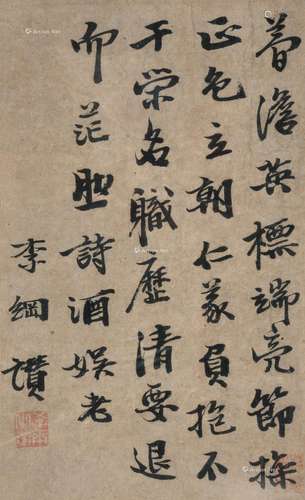 澹英標端亮節操
正色立朝仁義負抱不
干榮名職歷清要退
而茫然詩酒娛老
李綱讚